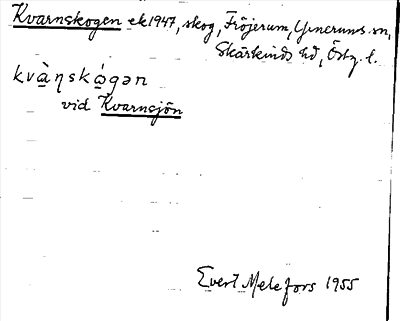 Kvarnskogen ek 1947, skog, Fröjerum, Yxnerums sn,
Skärkinds hd, Östg. l.
kvàɳskógən
vid Kvarnsjön
Evert Melefors 1955